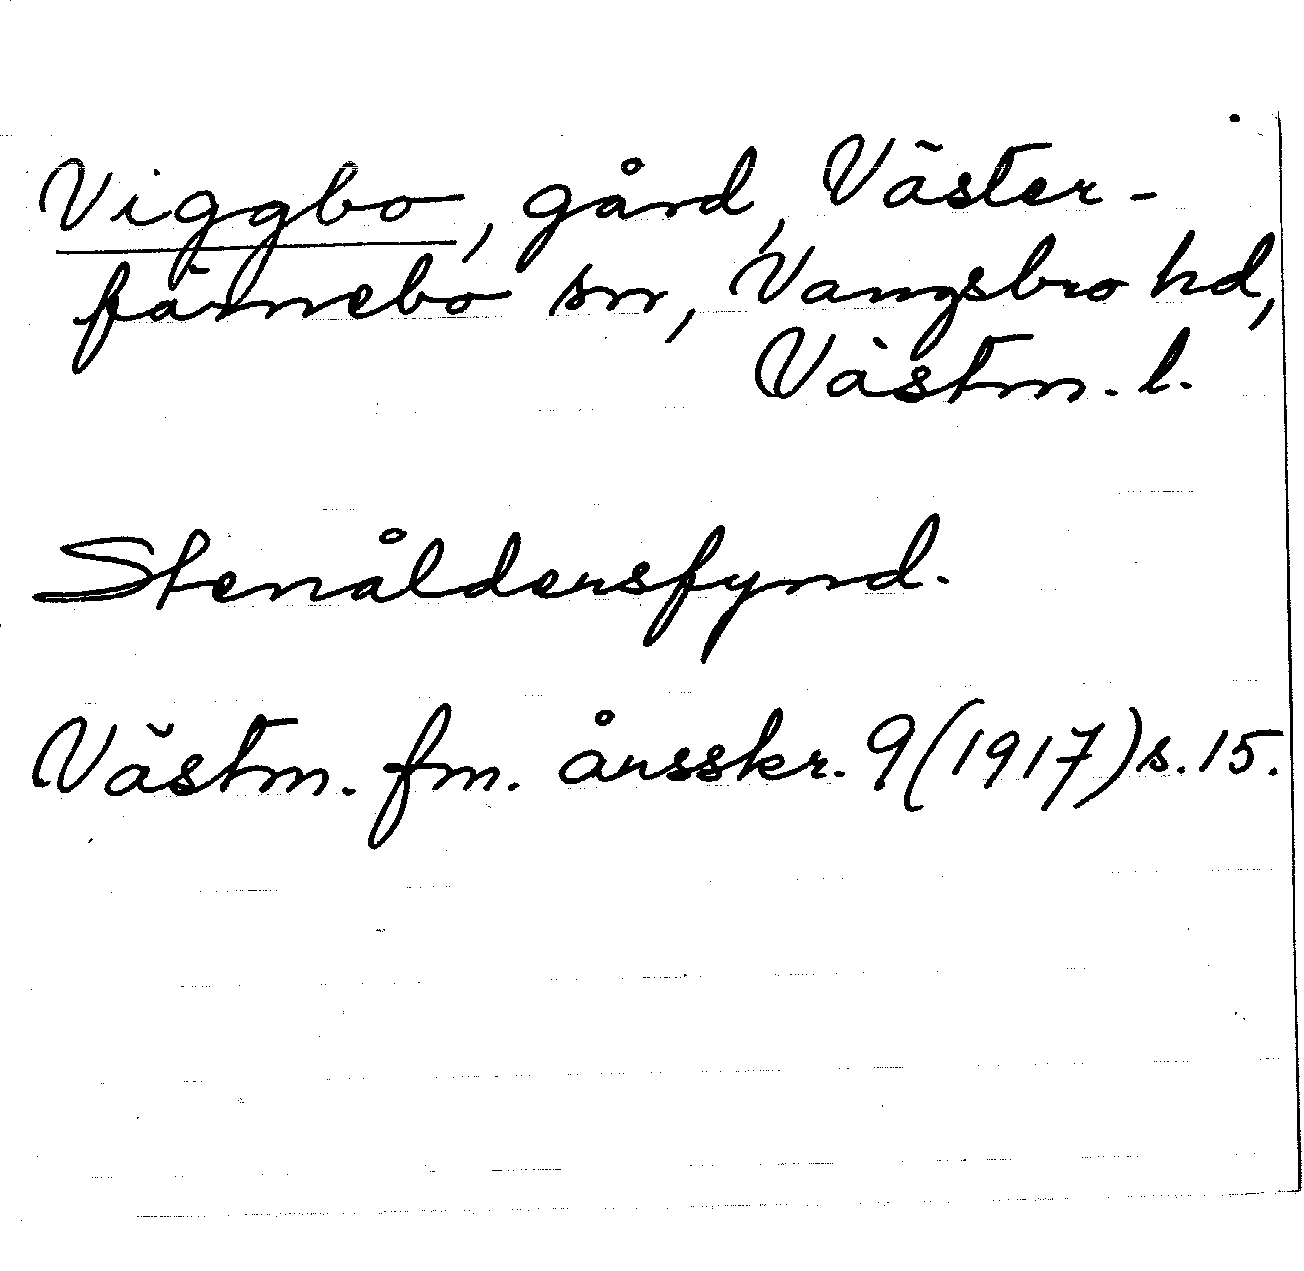 Viggbo, gård, Väster-
färnebo sn, Vangsbro hd,
Västm. l.
Stenåldersfynd.
Västm. fm. årsskr. 9 (1917) s. 15.